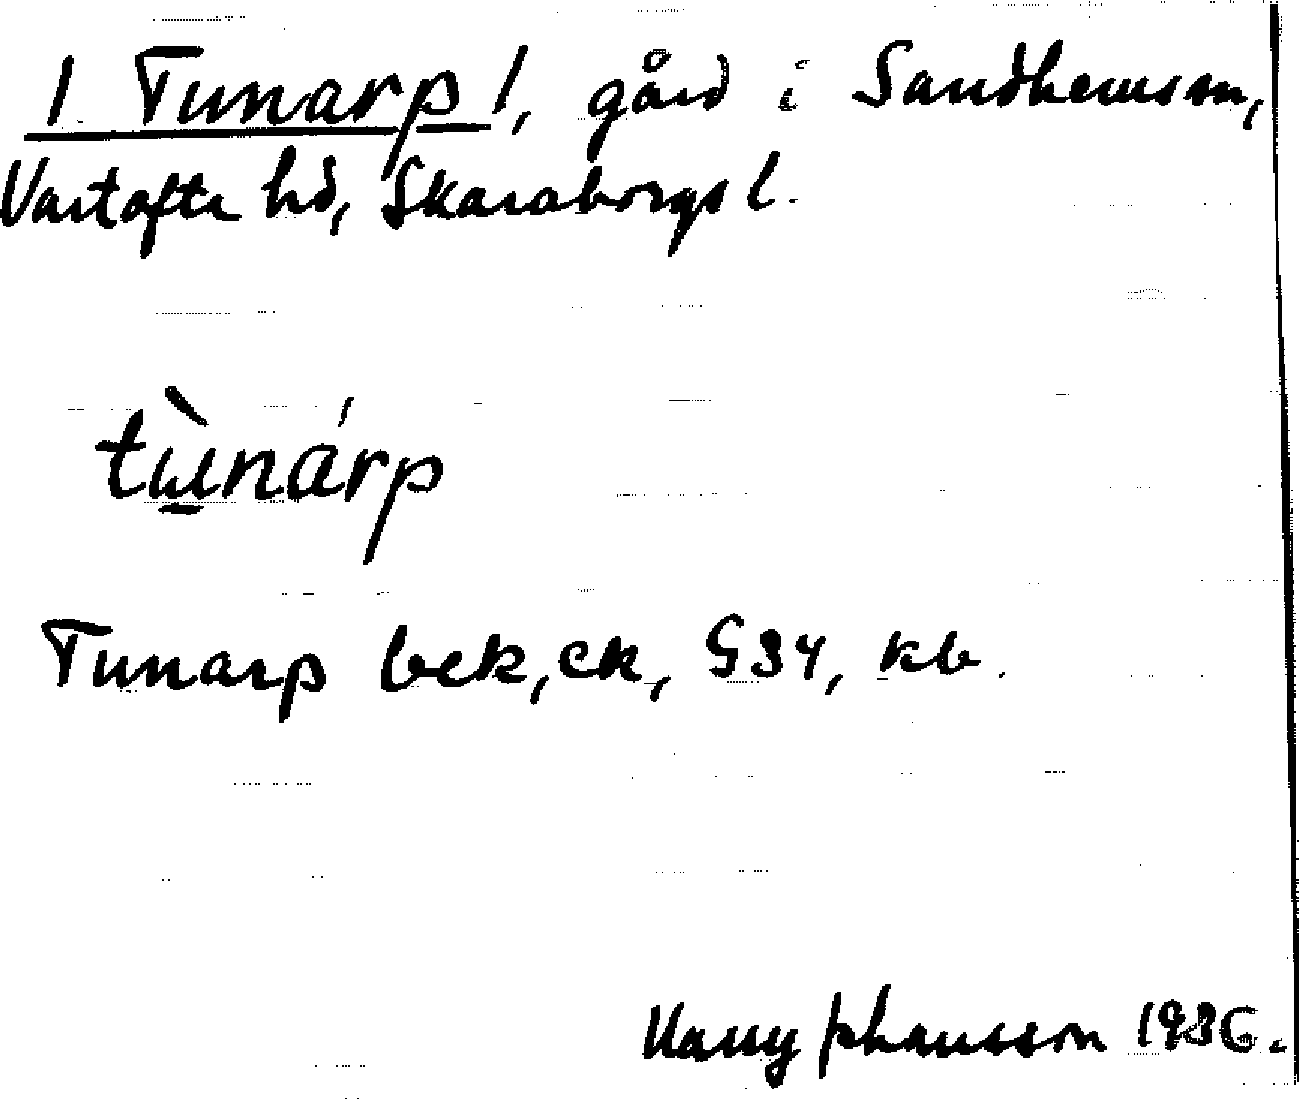 / Tunarp /, gård i Sandhems sn,
Vartofta hd, Skaraborgs l.
tùnárp
Tunarp bek, ek, G34, kb.
Harry Johansson 1936.